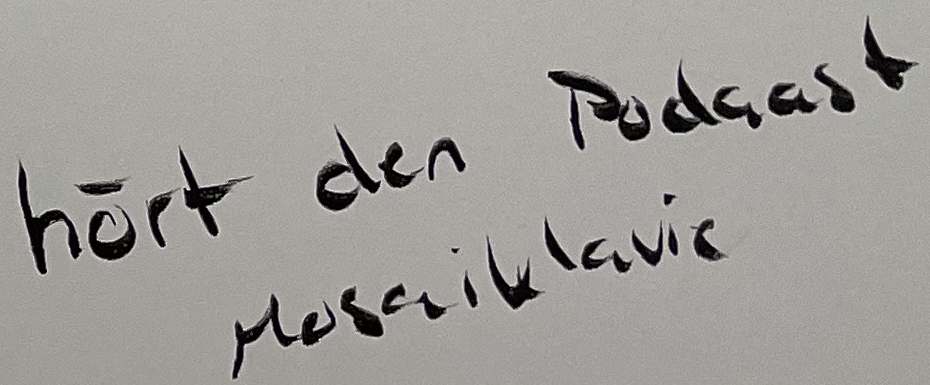 hört den Podcast
Mosaiklavie